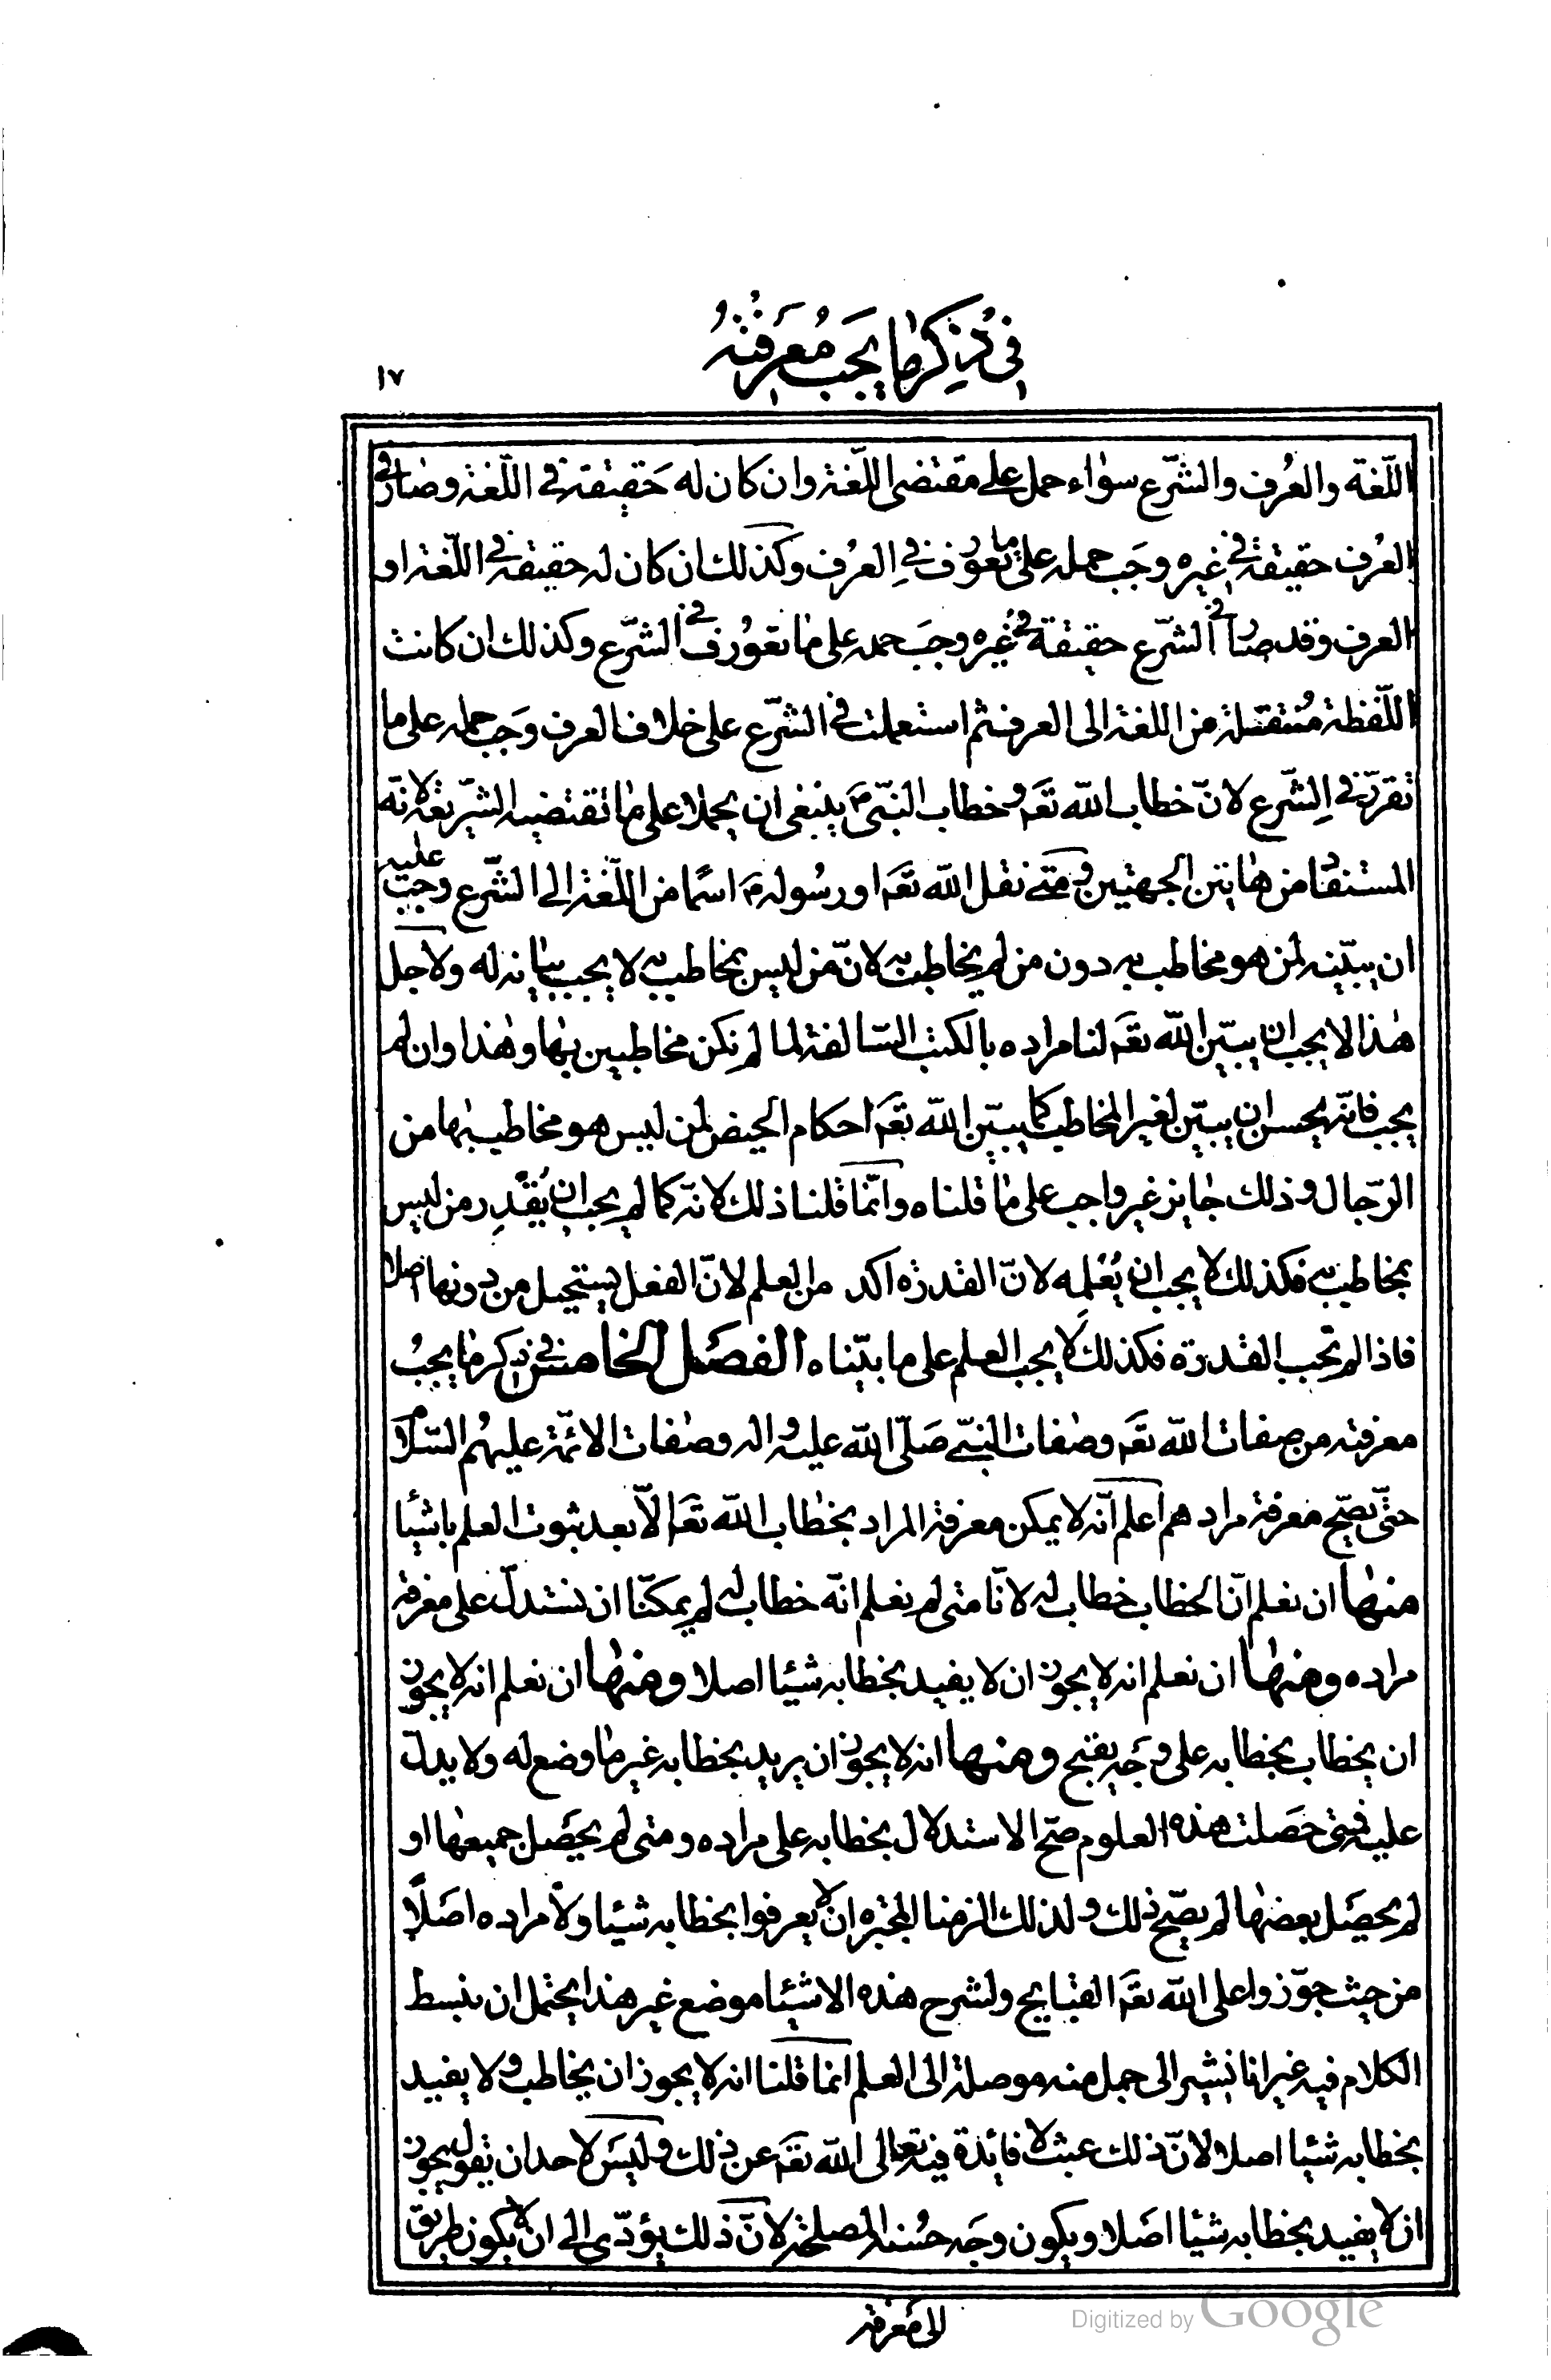 في ذكر ما يجب معرفته
١٧
اللّغة والعُرف والشّرع سواء حمل على مقتضى اللّغة وان كان له حَقيقة في اللّغة وصار في
العُرف حقيقة في غيره وجَب حمله على ما تعورف في العُرف وكذلك ان كان له حقيقة في اللّغة او
العرف وقد صار في الشّرع حقيقة في غيره وجَب حمله على ما تعوُرف في الشّرع وكذلك ان كانت
اللّفظة مُنتقلة من اللغة الى العرف ثم استعملت في الشّرع على خلاف العرف وَجب حمله على ما
تقرّر في الشّرع لانّ خطاب الله تعَم وخطاب النبّي صَ ينبغي ان يحملا على ما تقتضيه الشّريعة لانّه
المستفاد من هاتين الجهتين ومتى نقل الله تعَم او رسُوله صَ اسمًا من اللّغة الى الشّرع وجب عليه
ان يبيّنه لمن هو مخاطب به دون من لم يخاطب به لانّ من ليس بمخاطب به لا يجب بيانه له ولاجل
هذا لا يجب ان يبيّن الله تعَم لنا مراده بالكتب السّالفة لما لم نكن مخاطبين بها وهذا وان لم
يجب فانّه يحسن ان يبيّن لغير المخاطب كما يبيّن الله تعَم احكام الحيض لمن ليس هو مخاطب بها من
الرّجال وذلك جايز غير واجب على ما قلناه وانّما قلنا ذلك لانّه كما لم يجب ان يُقدِر من ليس
بمخاطب به فكذلك لا يجب ان يُعْلمه لانّ القدرة اكد من العلم لانّ الفعل يستحيل من دونها اصلا
فاذا لم تجب القدرة فكذلك لا يجب العلم على ما بيّناه الفصَل الخامس في ذكر ما يجبُ
معرفته من صفات الله تعَم وصفات النبّي صَلّى الله عليه واله وصفات الائمّة عليهم السّلام
حتّى يصّح معرفة مرادهم اعلم انّه لا يمكن معرفة المراد بخطاب الله تعَم الّا بعد ثبوت العلم باشيا
منها ان نعلم انّ الخطاب خطاب له لانّا متى لم نعلم انّه خطاب له لم يمكنّا ان نستدلّ على معرفة
مراده ومنها ان نعلم انه لا يجوز ان لا يفيد بخطابه شيئا اصلا ومنها ان نعلم انه لا يجوز
ان يخطاب بخطابه على وَجه يقبح ومنها انه لا يجوز ان يريد بخطابه غير ما وضع له ولا يدلّ
عليه فمتى حَصلت هذه العلوم صّح الاستدلال بخطابه على مراده ومتى لم يحصَل جميعها او
لم يحصَل بعضها لم يصّح ذلك ولذلك الزمنا المجبره ان لا يعرفوا بخطابه شيئا ولا مراده اصَلًا
من حيث جوّزوا على الله تعَم القبايح ولشرح هذه الاشيا موضع غير هذا يحتمل ان نبسط
الكلام فيه غير انا نشير الى جمل منه موصلة الى العلم انما قلنا انه لا يجوز ان يخاطب ولا يفيد
بخطابه شيئا اصلا لانّ ذلك عبث لا فائدة فيه تعالى الله تعَم عن ذلك وليَس لاحد ان يقول يجوز
ان لا يفيد بخطابه شيئا اصَلا ويكون وجَه حسُنه المصلحة لانّ ذلك يؤدّي الى ان لا يكون طريق
الى معرفة
Digitized by Google